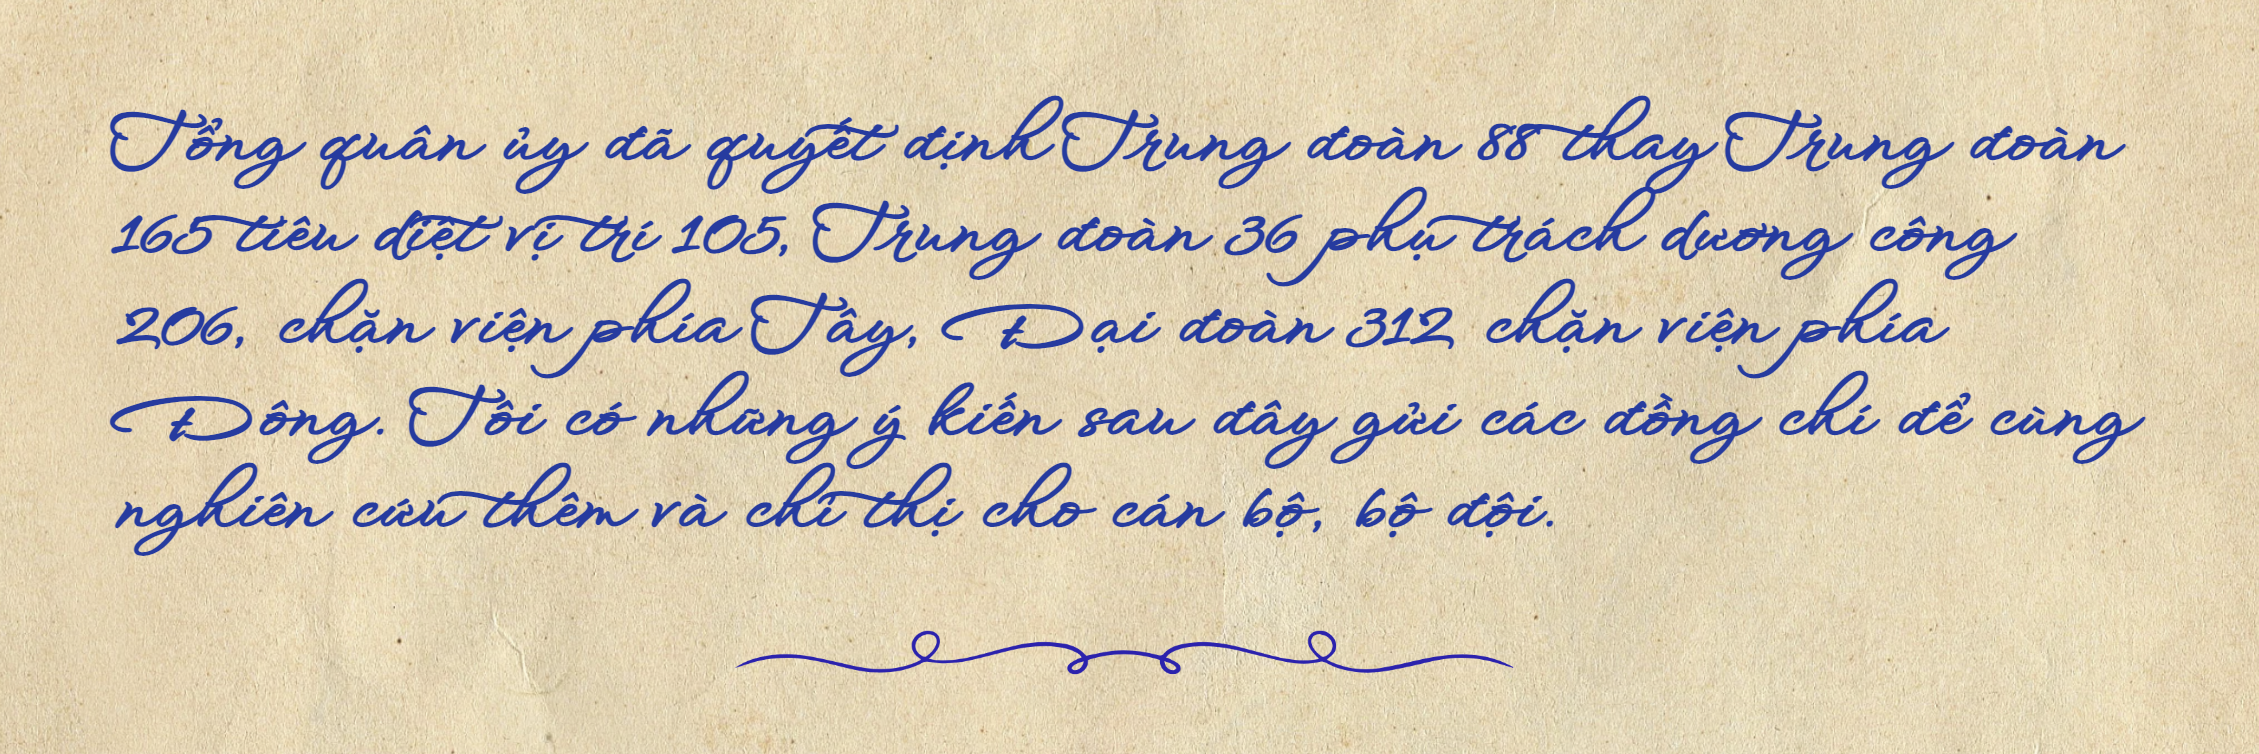 Tổng quân ủy đã quyết định Trung đoàn 88 thay Trung đoàn
165 tiêu diệt vị trí 105, Trung đoàn 36 phụ trách dương công
206, chặn viện phía Tây, Đại đoàn 312 chặn viện phía
Đông. Tôi có những ý kiến sau đây gửi các đồng chí để cùng
nghiên cứu thêm và chỉ thị cho cán bộ, bộ đội.